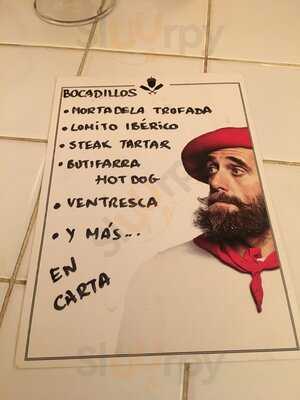 BOCADILLOS
• MORTADELA TROFADA
• LOMITO IBÉRICO
• STEAK TARTAR
• BUTIFARRA
HOT DOG
• VENTRESCA
• Y MÁS...
EN
CARTA